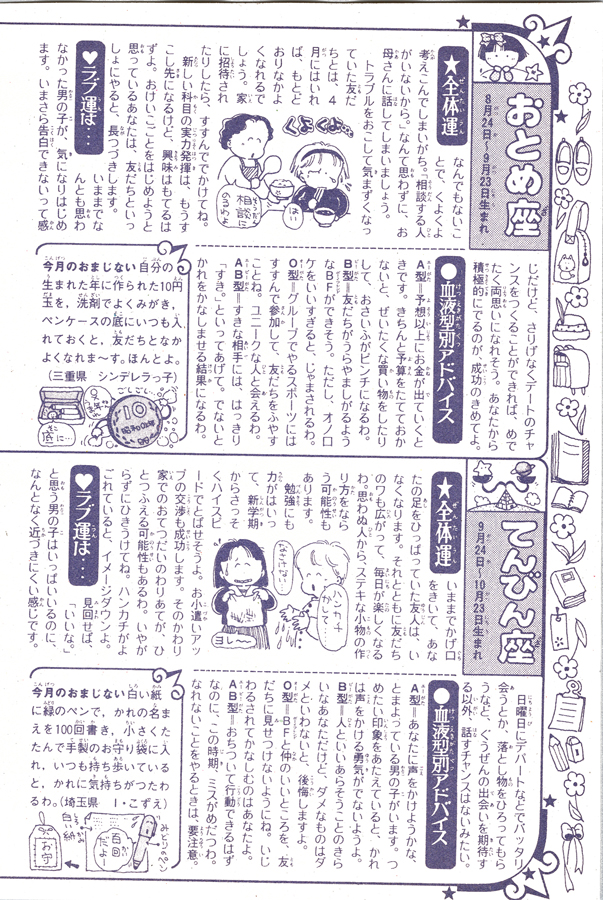 おとめ座
8月24日～9月23日生まれ
★全体運
なんでもないこ
とで、くよくよ
考えこんでしまいがち。「相談する人
がいないから。」なんて思わずに、お
母さんに話してしまいましょう。
トラブルをおこして気まずくなっ
ていた友だ
ちとは、4
月にはいれ
ば、もとど
おりなかよ
くなれるで
しょう。家
に招待され
たりしたら、すすんででかけてね。
新しい科目の実力発揮は、もうす
こし先になるけど、興味はもてるは
ずよ。おけいこごとをはじめようと
思っているあなたは、友だちといっ
しょにやると、長つづきします。
♥ラブ運は…
いままでな
んとも思わ
なかった男の子が、気になりはじめ
ます。いまさら告白できないって感
くよくよ…
そうだん
相談に
のるわよ
はい
じだけど、さりげなくデートのチャ
ンスをつくることができれば、めで
たく両思いになれそう。あなたから
積極的にでるのが、成功のきめてよ。
●血液型別アドバイス
A型=予想以上にお金が出ていくと
きです。きちんと予算をたてておか
ないと、ぜいたくな買い物をしたり
して、おさいふがピンチになるわ。
B型=友だちがうらやましがるよう
なBFができそう。ただし、オノロ
ケをいいすぎると、じゃまされるわ。
O型=グループでやるスポーツには
すすんで参加して、友だちをふやす
ことね。ユニークな人と会えるわ。
AB型=すきな相手には、はっきり
「すき。」といってあげて。でないと
かれをかなしませる結果になるわ。
今月のおまじない 自分の
生まれた年に作られた10円
玉を、洗剤でよくみがき、
ペンケースの底にいつも入
れておくと、友だちとなか
よくなれま～す。ほんとよ。
（三重県 シンデレラっ子）
ごしごし…
てんびん座
9月24日～10月23日生まれ
★全体運
いままでかげ口
をきいて、あな
たの足をひっぱっていた友人は、い
なくなります。それとともに友だち
のワも広がって、毎日が楽しくなる
わ。思わぬ人から、ステキな小物の作
り方をなら
う可能性も
あります。
勉強にも
力がはいっ
て、新学期
からさっそ
くハイスピ
ードでとばせそうよ。お小遣いアッ
プの交渉も成功します。そのかわり
家でのおてつだいのわりあてが、ひ
とつふえる可能性もあるわ。いやが
らずにひきうけてね。ハンカチがよ
ごれていると、イメージダウンよ。
♥ラブ運は…
見回せば、
「いいな。」
と思う男の子はいっぱいいるのに、
なんとなく近づきにくい感じです。
ハンカチ
かして
ヨレ～
日曜日にデパートなどでバッタリ
会うとか、落とし物をひろってもら
うなど、ぐうぜんの出会いを期待す
る以外、話すチャンスはないみたい。
●血液型別アドバイス
A型=あなたに声をかけようかな、
とまよっている男の子がいます。つ
めたい印象をあたえていると、かれ
は声をかける勇気がでないようよ。
B型=人といいあらそうことのきら
いなあなただけど、ダメなものはダ
メといわないと、後悔しますよ。
O型=BFと仲のいいところを、友
だちに見せつけないようにね。いじ
わるされてかなしむのはあなたよ。
AB型=おちついて行動できるはず
なのに、この時期、ミスがめだつわ。
なれないことをやるときは、要注意。
今月のおまじない 白い紙
に緑のペンで、かれの名ま
えを100回書き、小さくた
たんで手製のお守り袋に入
れ、いつも持ち歩いている
と、かれに気持ちがつたわ
るわ。（埼玉県 I・こずえ）
みどりのペン
百回
だよ～
白い紙
お守